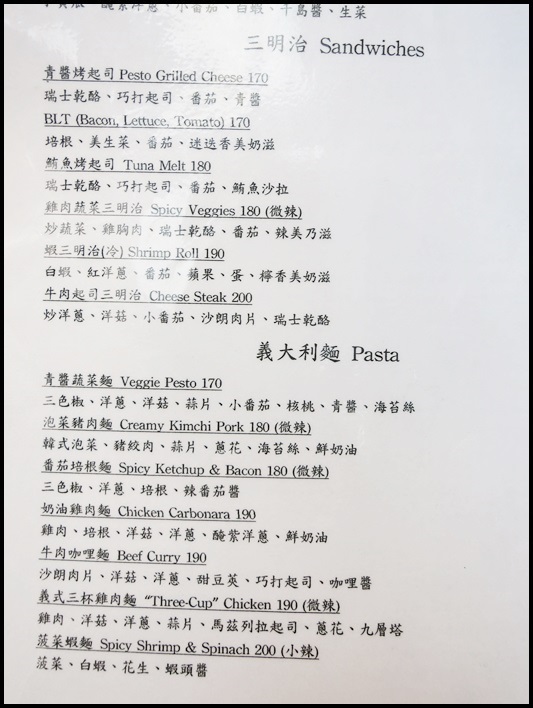 醃紫洋蔥、小番茄、白蝦、千島醬、生菜
三明治 Sandwiches
青醬烤起司 Pesto Grilled Cheese 170
瑞士乾酪、巧打起司、番茄、青醬
BLT (Bacon, Lettuce, Tomato) 170
培根、美生菜、番茄、迷迭香美奶滋
鮪魚烤起司 Tuna Melt 180
瑞士乾酪、巧打起司、番茄、鮪魚沙拉
雞肉蔬菜三明治 Spicy Veggies 180 (微辣)
炒蔬菜、雞胸肉、瑞士乾酪、番茄、辣美乃滋
蝦三明治(冷) Shrimp Roll 190
白蝦、紅洋蔥、番茄、蘋果、蛋、檸香美奶滋
牛肉起司三明治 Cheese Steak 200
炒洋蔥、洋菇、小番茄、沙朗肉片、瑞士乾酪
義大利麵 Pasta
青醬蔬菜麵 Veggie Pesto 170
三色椒、洋蔥、洋菇、蒜片、小番茄、核桃、青醬、海苔絲
泡菜豬肉麵 Creamy Kimchi Pork 180 (微辣)
韓式泡菜、豬絞肉、蒜片、蔥花、海苔絲、鮮奶油
番茄培根麵 Spicy Ketchup & Bacon 180 (微辣)
三色椒、洋蔥、培根、辣番茄醬
奶油雞肉麵 Chicken Carbonara 190
雞肉、培根、洋菇、洋蔥、醃紫洋蔥、鮮奶油
牛肉咖哩麵 Beef Curry 190
沙朗肉片、洋菇、洋蔥、甜豆莢、巧打起司、咖哩醬
義式三杯雞肉麵 “Three-Cup” Chicken 190 (微辣)
雞肉、洋菇、洋蔥、蒜片、馬茲列拉起司、蔥花、九層塔
菠菜蝦麵 Spicy Shrimp & Spinach 200 (小辣)
菠菜、白蝦、花生、蝦頭醬